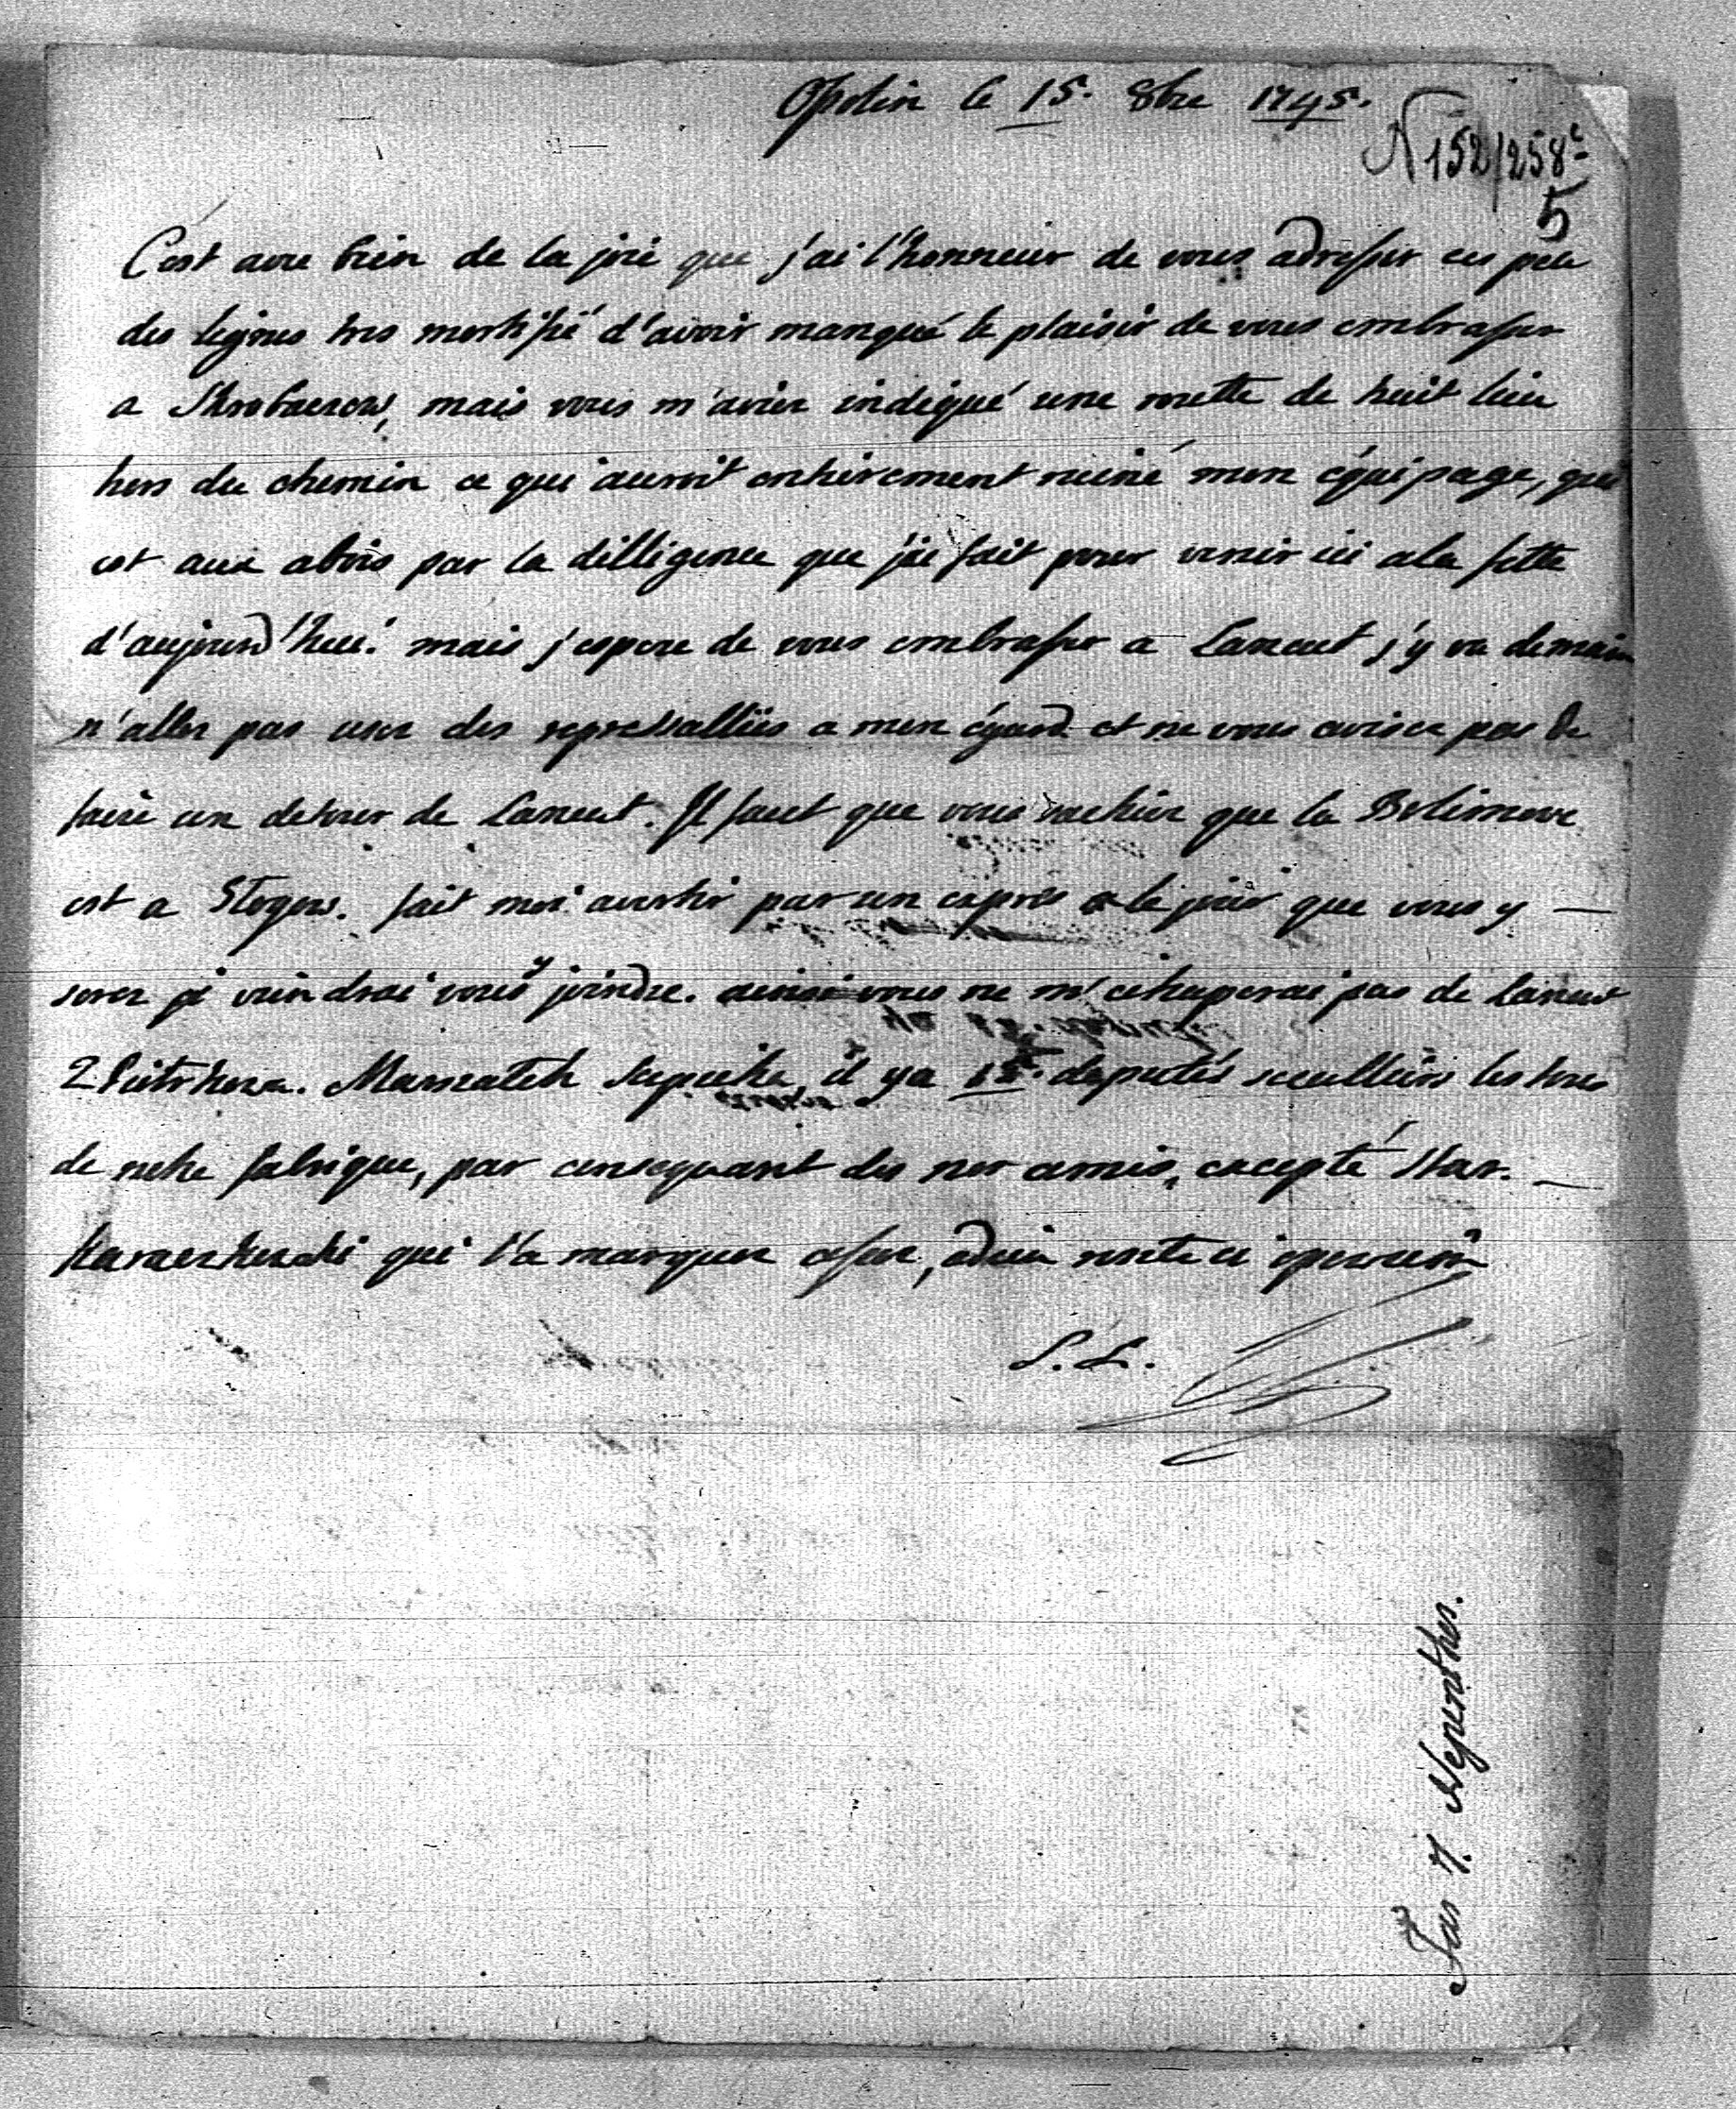 Opolin le 15. 8bre 1745.
N 152/258c
5
C'est avec bien de la joie que j'ai l'honneur de vous adresser ces peu
des lignes tres mortifié d'avoir manqué le plaisir de vous embrasser
a mais vous m'aviez indiqué une routte de huit lieu
hors du chemin ce qui auroit entierement ruiné mon equipage, qui
est aux abois par la dilligence que j'ai fait pour venir ici a la fette
d'aujourd'hui. mais j'espere de vous embrasser a Lancut j'y va demain
n'allez pas user des repressallies a mon egard et ne vous avisez pas de
faire un detour de Lancut. Il faut que vous sachiez que la
est a fait moi avertir par un exprés le jour que vous y
serez je viendrai vous y joindre. ainsi vous ne m'echaperai pas de Lancut
il y a 12. deputés tres
de notre fabrique, par consequant des nos amis, excepté Star.
qui l'a manquer adieu
L. L.
Fas 7. Nepenthes.